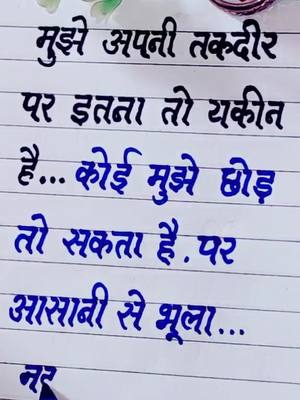 मुझे अपनी तकदीर
पर इतना तो यकीन
है... कोई मुझे छोड़
तो सकता है. पर
आसानी से भूला...
नह